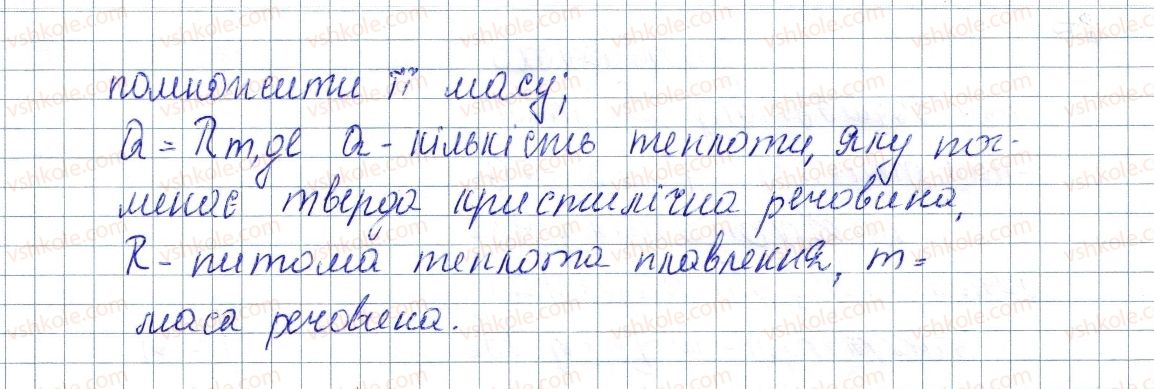 помножити її масу;
Q = λm, де Q - кількість теплоти, яку пог-
линає тверда кристилічна речовина,
λ - питома теплота плавлення, m =
маса речовина.
vshkole.com